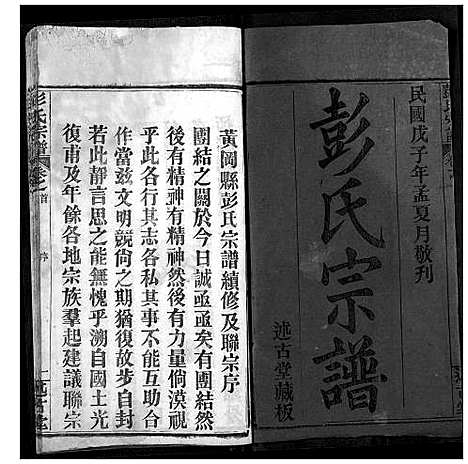 民國戊子年孟夏月敬刊
彭氏宗譜
述古堂藏板
黃岡縣彭氏宗譜續修及聯宗序
團結之關於今日誠亟亟矣有團結然
後有精神有精神然後有力量倘漠視
乎此各行其志各私其事不能互助合
作當茲文明競尙之期猶復故步自封
若此靜言思之能無愧乎溯自國土光
復甫及年餘各地宗族羣起建議聯宗
彭氏宗譜
卷之首
序
一